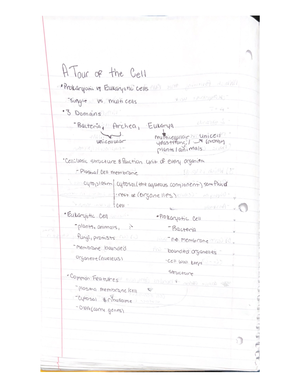 A Tour of the Cell
• Prokaryotic vs Eukaryotic Cells
• Single vs. multi cells
• 3 Domains
• Bacteria, Archea, Eukarya
unicellular multicellular unicell
plants/animals
Cellular structure & function unit of every organism
• Plasma/Cell membrane
cytoplasm cytosol (aqueous component), semifluid
(organelles)
• Eukaryotic Cell
• plants, animals,
fungi, protists
• membrane bounded
organelle (nucleus)
• Prokaryotic Cell
• Bacteria
• no membrane
bounded organelles
• Cell wall
structure
• Common Features
• plasma membrane
• Cytosol & ribosome
• DNA (genes)